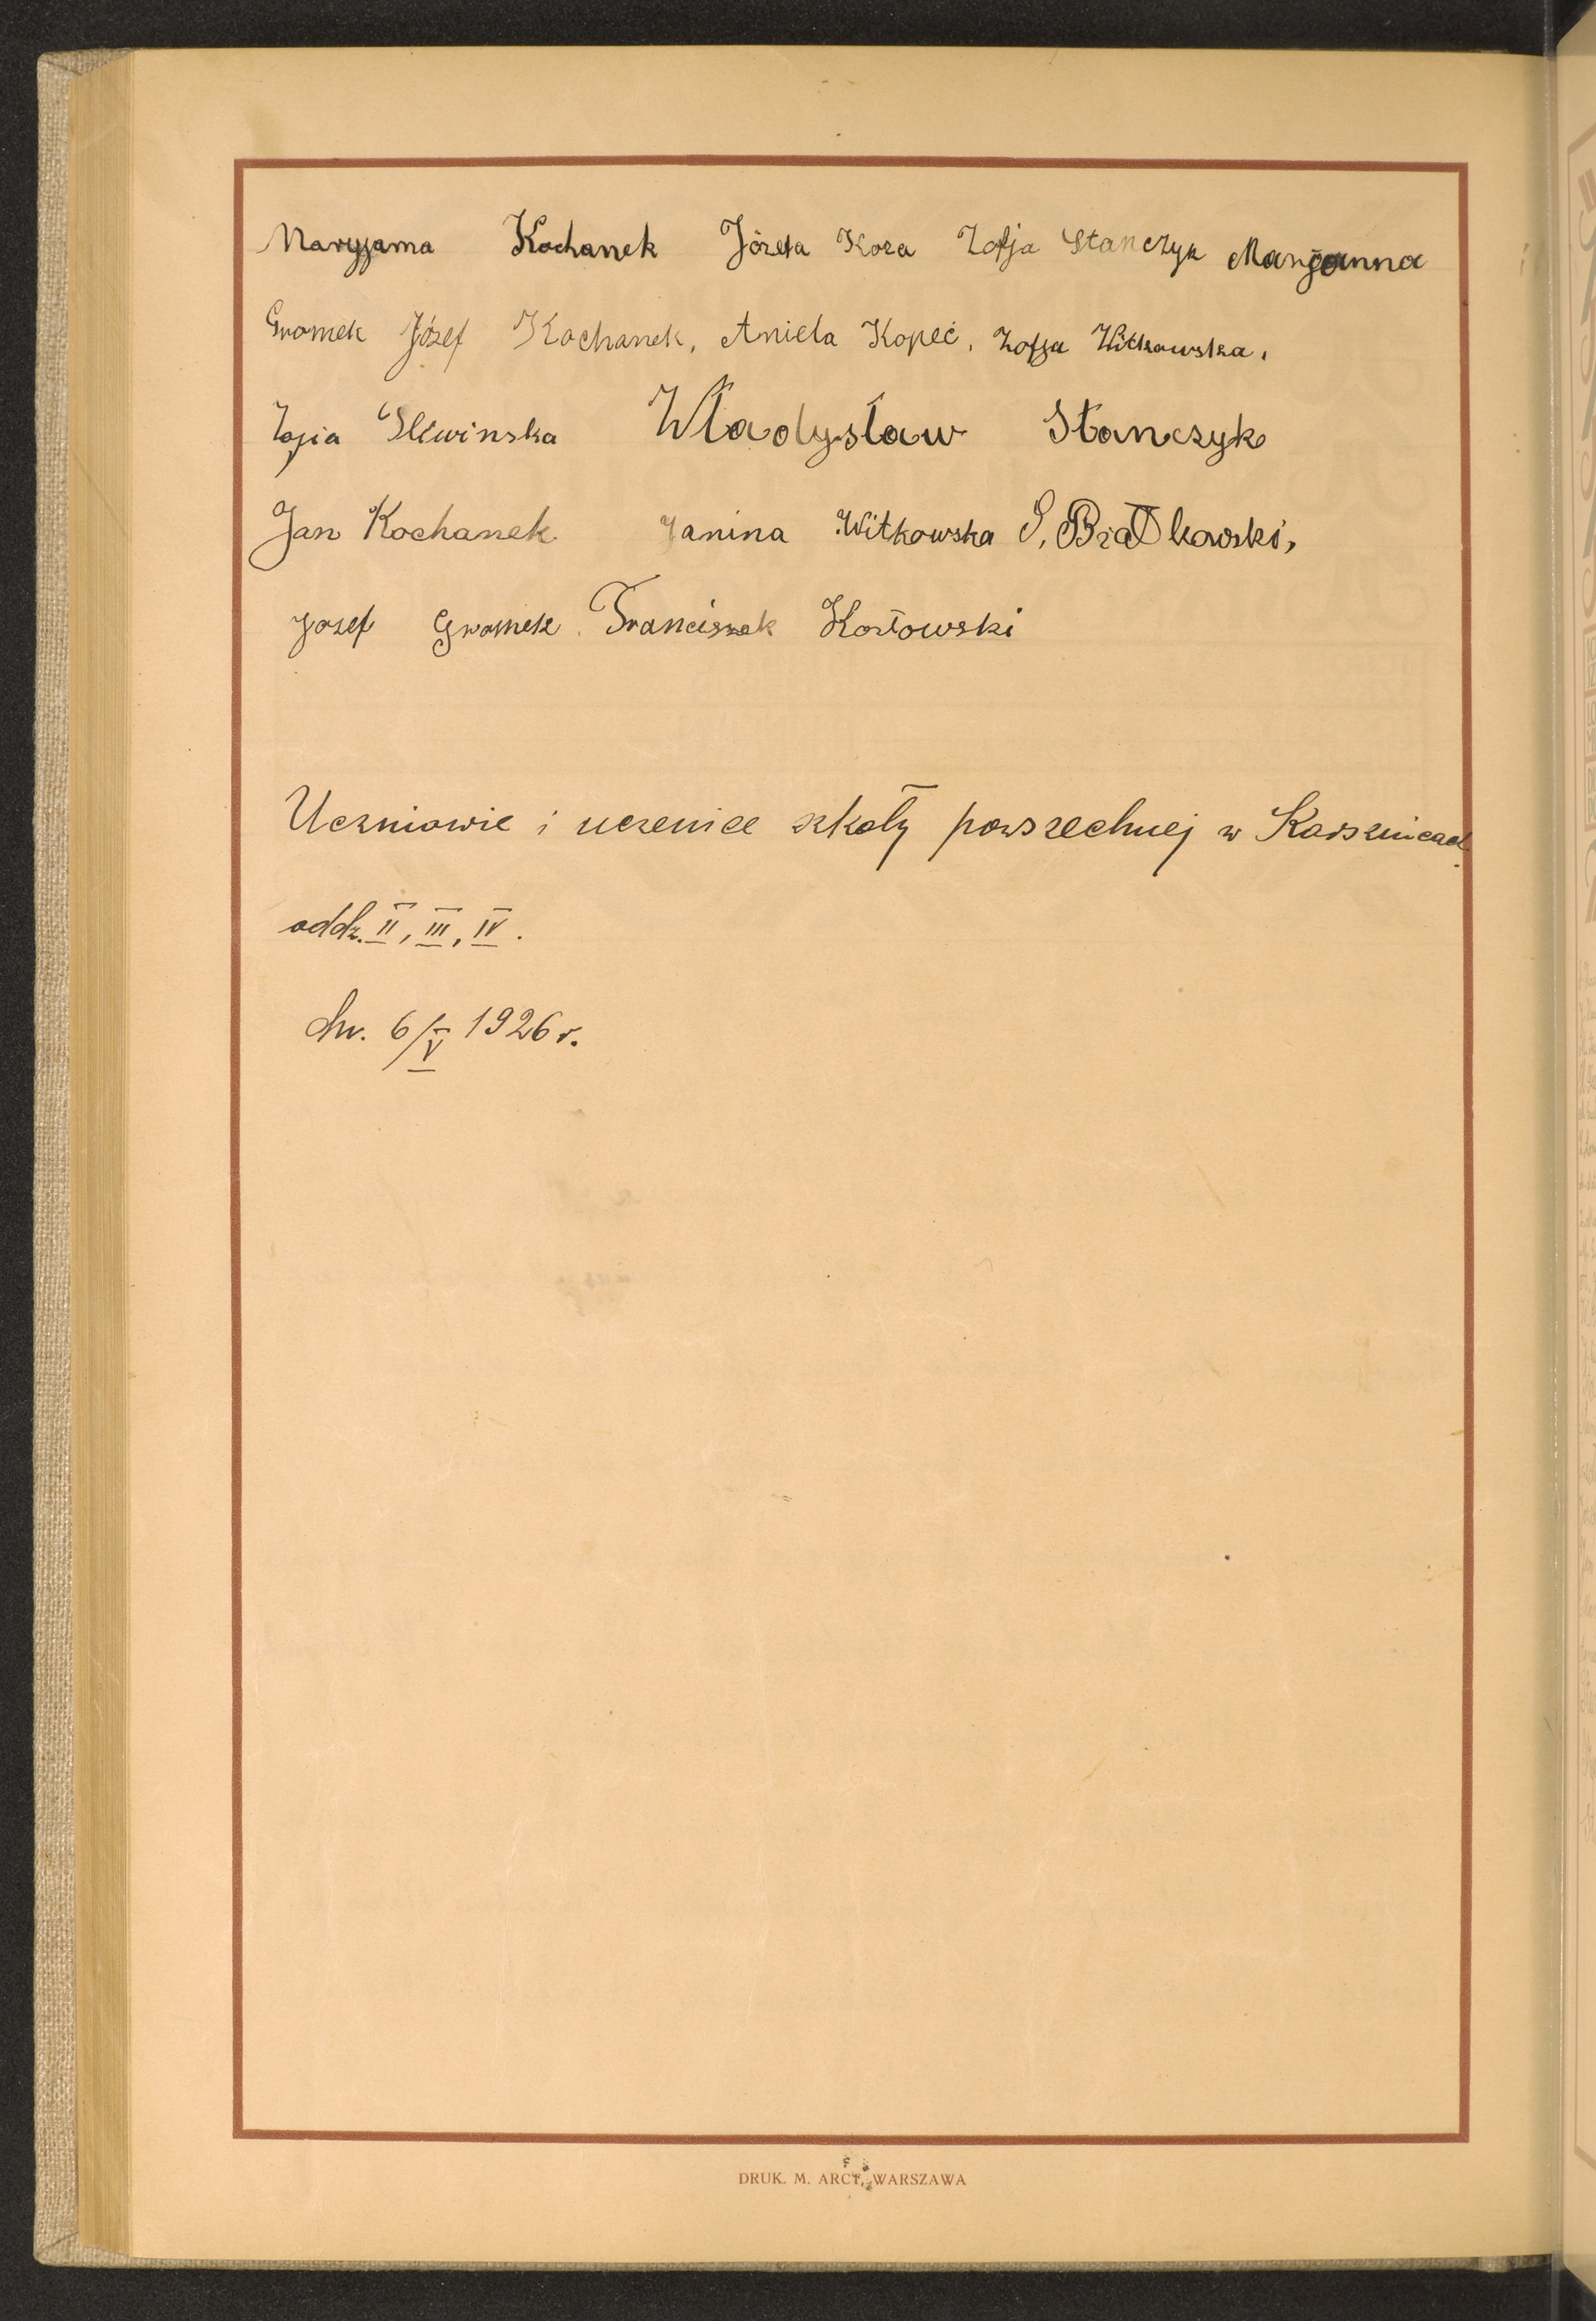 Maryjanna Kochanek Józefa Koza Zofja Stanczyk Maryjanna
Gromek Józef Kochanek, Aniela Kopeć, Zofja Witkowska,
Zofia Śliwinska Władysław Stanczyk
Jan Kochanek Janina Witkowska S, Białkowski,
Jozef Gromek. Franciszek Kozłowski
Uczniowie i uczenice szkoły powszechnej w Karsznicach
oddz. II, III, IV.
dn. 6/V 1926 r.
DRUK. M. ARCT, WARSZAWA